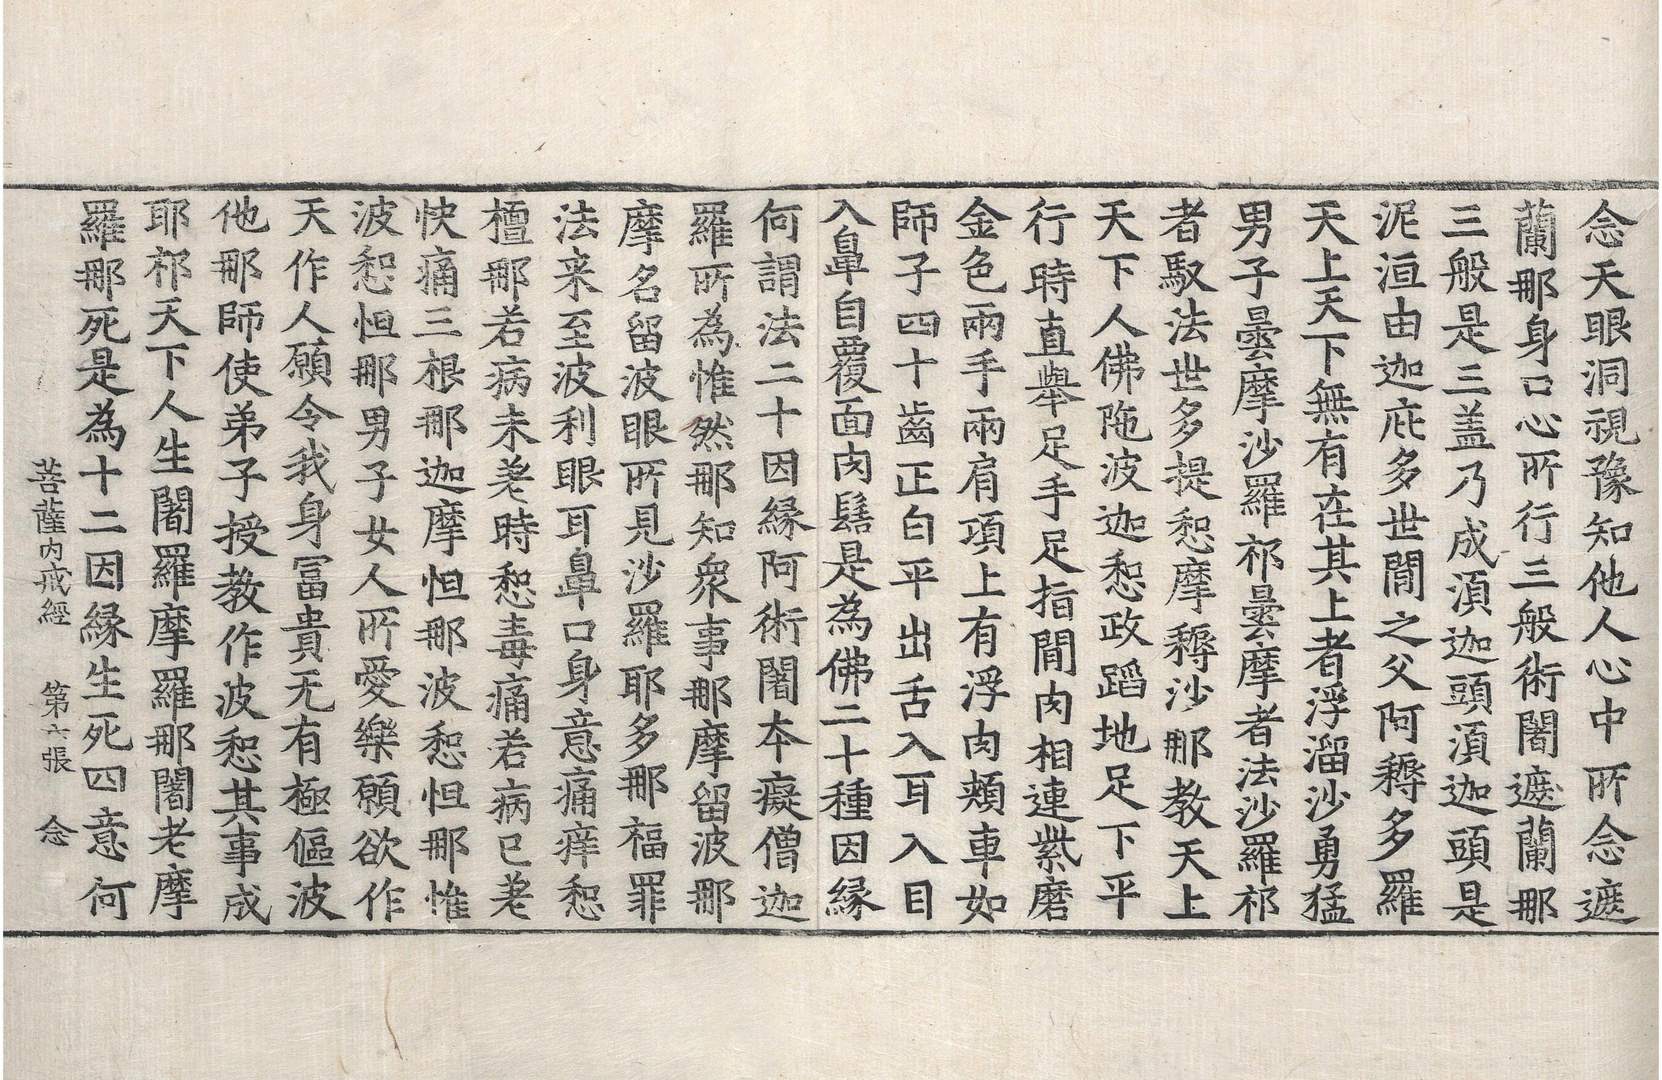 念天眼洞視豫知他人心中所念遮
蘭那身口心所行三般術闍遮蘭那
三般是三盖乃成湏迦頭湏迦頭是
泥洹由迦庇多世間之父阿耨多羅
天上天下無有在其上者浮溜沙勇猛
男子曇摩沙羅祁曇摩者法沙羅祁
者馭法世多提惒摩耨沙那教天上
天下人佛陁波迦惒政蹈地足下平
行時直舉足手足指間肉相連紫磨
金色兩手兩肩項上有浮肉頰車如
師子四十齒正白平出舌入耳入目
入鼻自覆面肉髻是為佛二十種因縁
何謂法二十因縁阿術闍本癡僧迦
羅所為惟然那知衆事那摩留波那
摩名留波眼所見沙羅耶多那福罪
法来至波利眼耳鼻口身意痛痒惒
檀那若病未差時惒毒痛若病已差
快痛三根那迦摩怛那波惒怛那惟
波惒怛那男子女人所愛樂願欲作
天作人願令我身冨貴无有極傴波
他那師使弟子授教作波惒其事成
耶祁天下人生闍羅摩羅那闍老摩
羅那死是為十二因縁生死四意何
菩薩内戒經　第六張　念